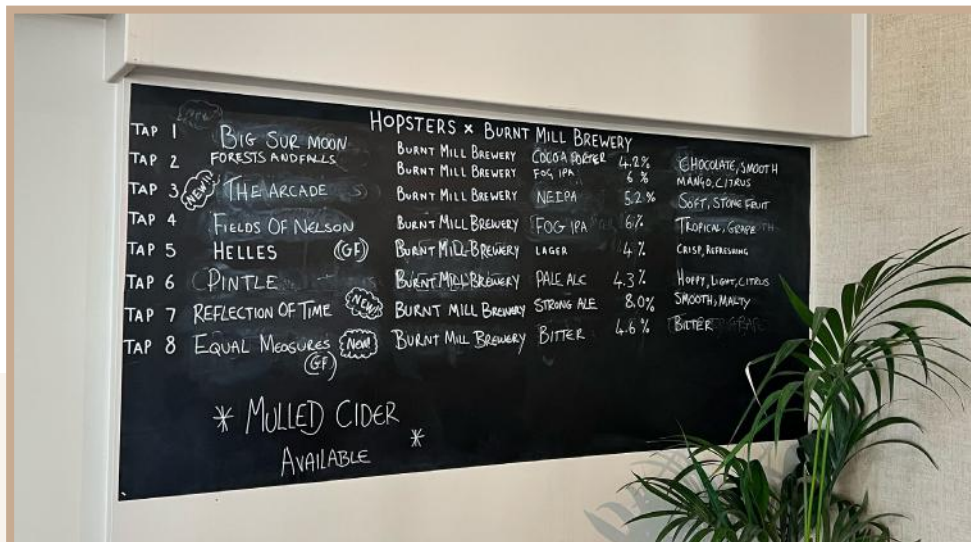 HOPSTERS × BURNT MILL BREWERY
TAP 1 BIG SUR MOON BURNT MILL BREWERY COCOA PORTER 4.2% CHOCOLATE, SMOOTH
TAP 2 FORESTS AND FALLS BURNT MILL BREWERY FOG IPA 6% MANGO, CITRUS
TAP 3 NEW!! THE ARCADE BURNT MILL BREWERY NEIPA 5.2% SOFT, STONE FRUIT
TAP 4 FIELDS OF NELSON BURNT MILL BREWERY FOG IPA 6% TROPICAL, GRAPE
TAP 5 HELLES (GF) BURNT MILL BREWERY LAGER 4% CRISP, REFRESHING
TAP 6 PINTLE BURNT MILL BREWERY PALE ALE 4.3% HOPPY, LIGHT, CITRUS
TAP 7 REFLECTION OF TIME NEW!! BURNT MILL BREWERY STRONG ALE 8.0% SMOOTH, MALTY
TAP 8 EQUAL MEASURES NEW! BURNT MILL BREWERY BITTER 4.6% BITTER
(GF)
* MULLED CIDER
AVAILABLE *